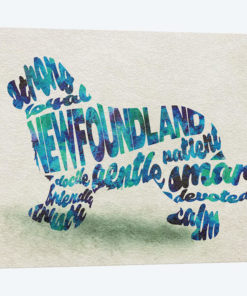 strong
loyal
NEWFOUNDLAND
docile gentle patient
friendly smart
trusty devoted
calm